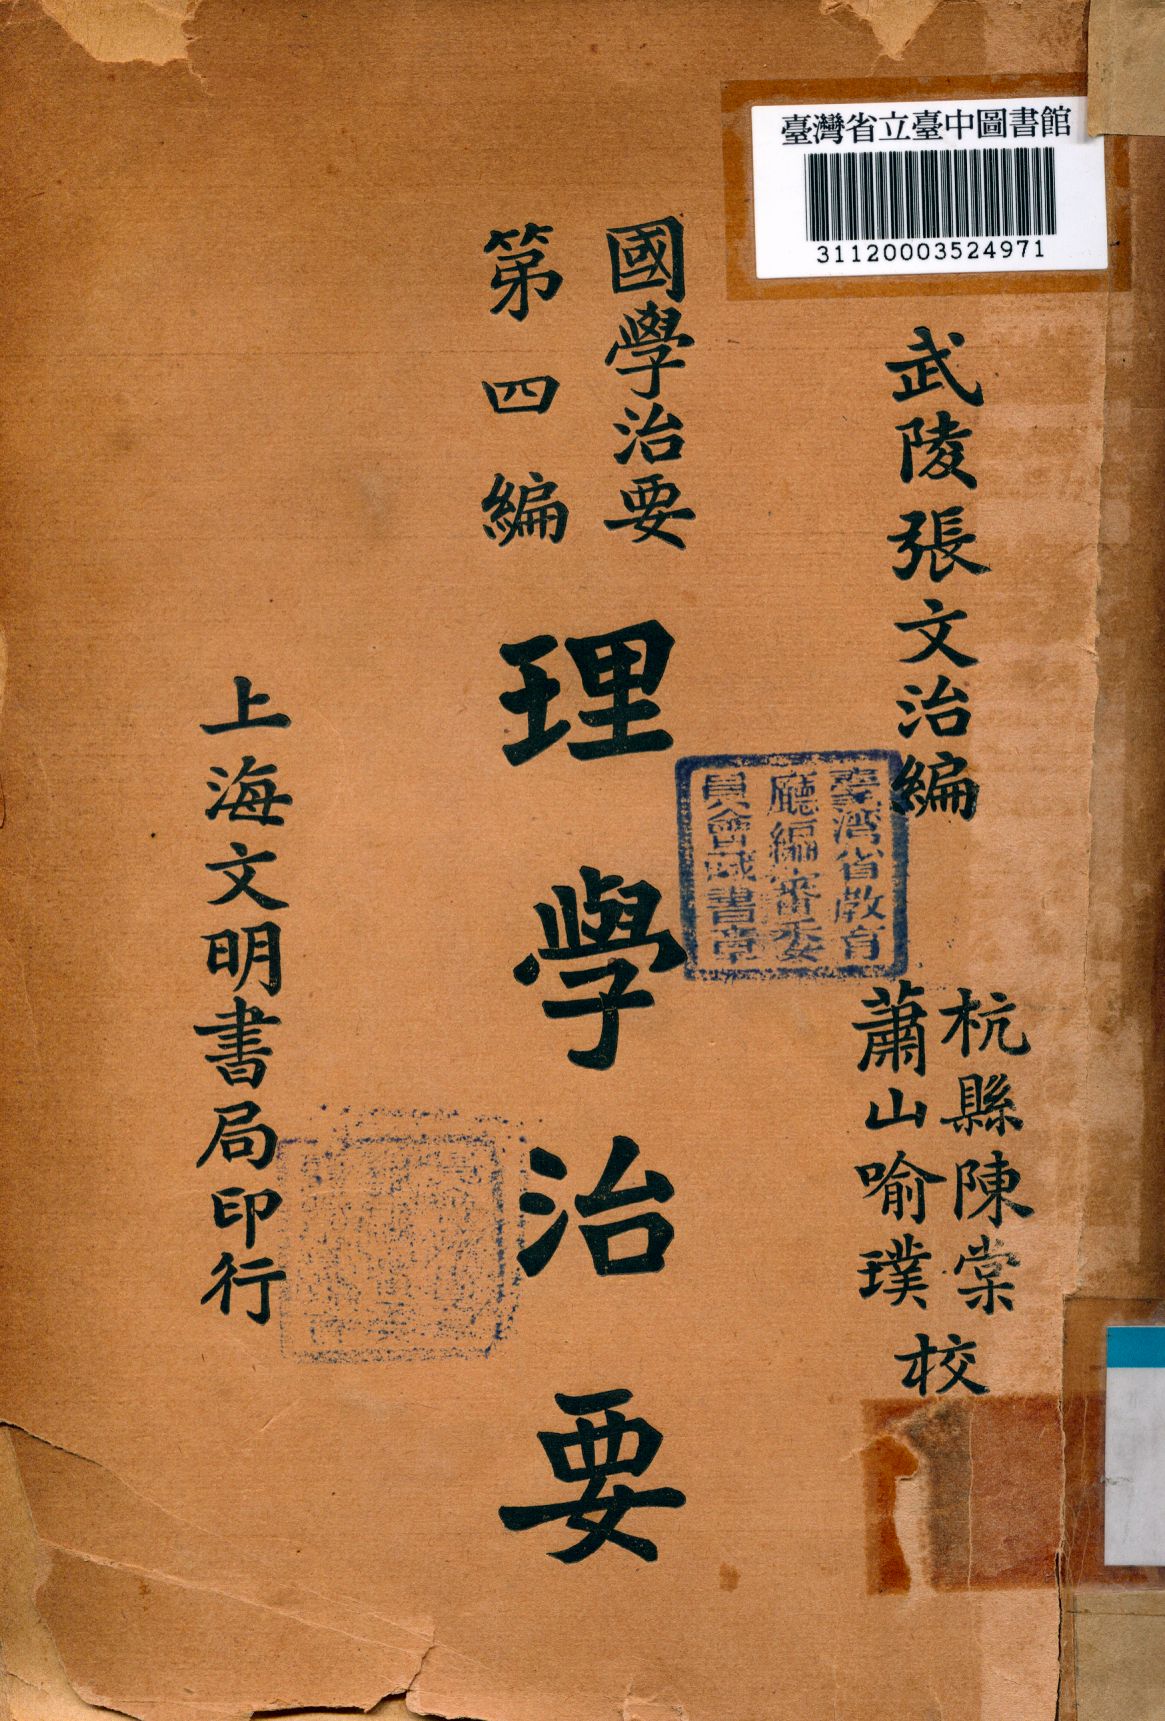 臺灣省立臺中圖書館
31120003524971
武陵張文治編
杭縣陳棠
蕭山喻璞
校
國學治要
第四編
理學治要
臺灣省教育
廳編審委
員會藏書章
上海文明書局印行